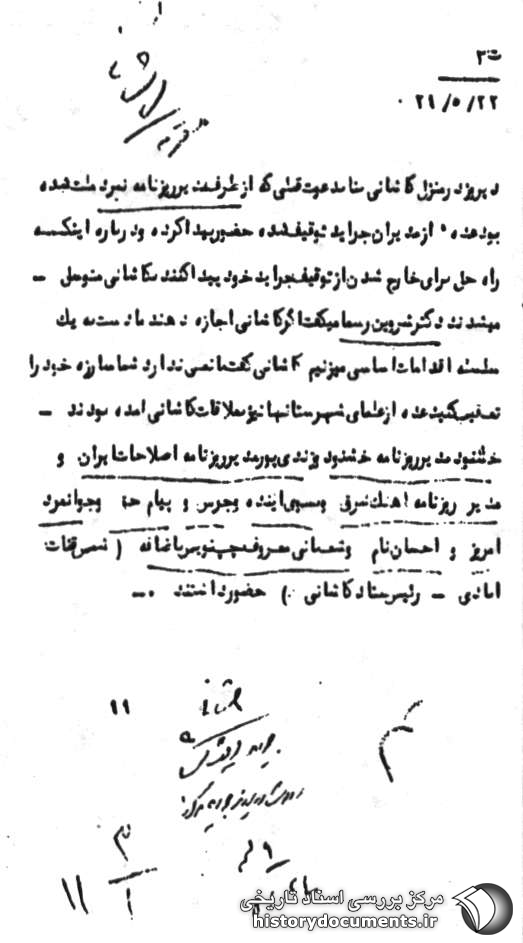 ت ۳
۲۱/۵/۲۲
دیروز در منزل کاشانی بنا بدعوت قبلی که از طرف مدیر روزنامه نبرد ملت شده
بود عده از مدیران جراید توقیف شده حضور پیدا کرده و درباره اینکه
راه حل برای خارج شدن از توقیف جراید خود پیدا کنند بکاشانی متوسل -
میشدند دکتر شروین رسما میگفت اگر کاشانی اجازه دهند ما دست به یک
سلسله اقدامات اساسی میزنیم کاشانی گفت مانعی ندارد شما مبارزه خود را
تعقیب کنید عده از علمای شهرستانها نیز بملاقات کاشانی آمده بودند -
خشنود مدیر روزنامه خشنود یزندی پور مدیر روزنامه اصلاحات ایران و
مدیر روزنامه آهنگ شرق و آینده و جرس و پیام و جوانمرد
امروز و احسان نام و شعبانی معروف به باضافه ( شمس قنات
آبادی - رئیس ستاد کاشانی ) حضور داشتند .-
۱۱
۱۱
مرکز بررسی اسناد تاریخی
historydocuments.ir